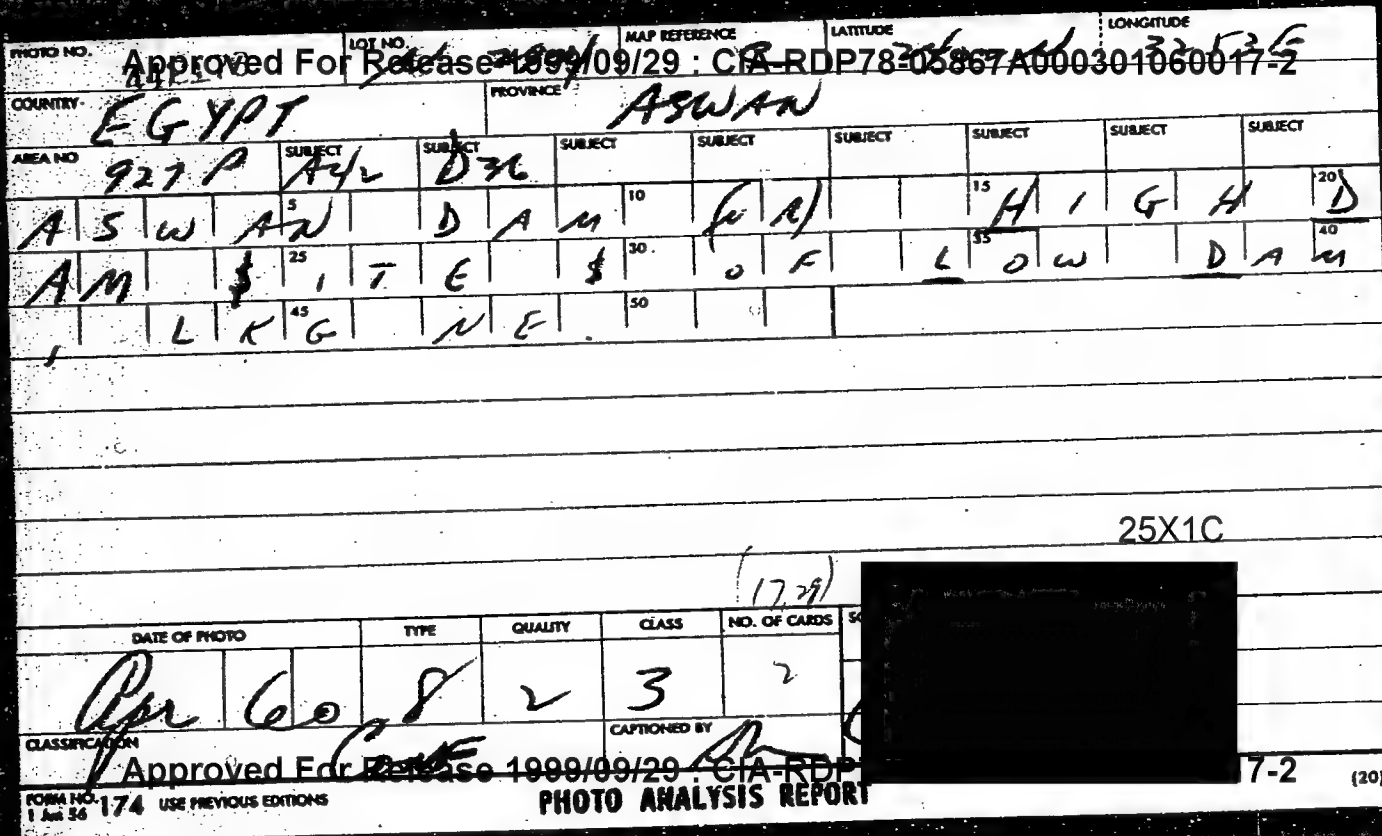 PHOTO NO. LOT NO. MAP REFERENCE LATITUDE LONGITUDE
Approved For Release 1999/09/29 : CIA-RDP78-05867A000301060017-2
COUNTRY EGYPT PROVINCE ASWAN
AREA NO 927 P SUBJECT A42 SUBJECT D36 SUBJECT SUBJECT SUBJECT SUBJECT SUBJECT SUBJECT
ASWAN DAM (NR) HIGH D
5 10 15 20
AM $ITE $ OF LOW DAM
25 30 35 40
, LKG NE.
45 50
25X1C
(17,29)
DATE OF PHOTO TYPE QUALITY CLASS NO. OF CARDS
Apr 60 8 2 3 2
CLASSIFICATION CAPTIONED BY
Approved For Release 1999/09/29 : CIA-RDP 7-2
FORM NO. 174 USE PREVIOUS EDITIONS PHOTO ANALYSIS REPORT (20)
1 Jun 56